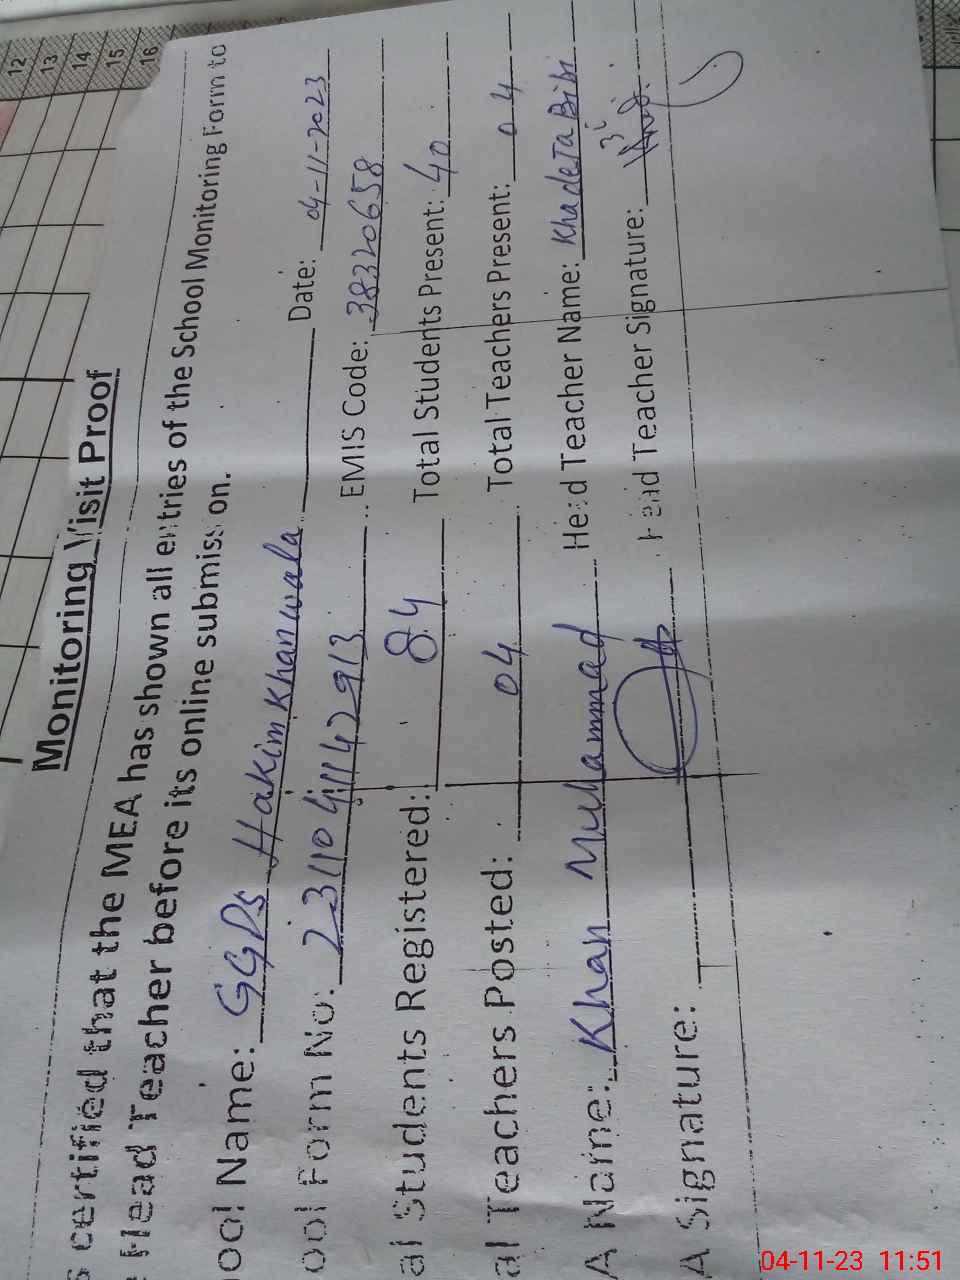 12
13
14
15
16
Monitoring Visit Proof
certified that the MEA has shown all entries of the School Monitoring Form to
Head Teacher before its online submission.
ool Name: GGPS Hakim Khan wala Date: 04-11-2023
ool Form No: 231104111142913 EMIS Code: 38320658
al Students Registered: 84 Total Students Present: 40
al Teachers Posted: 04 Total Teachers Present: 04
A Name: Khan Muhammad Head Teacher Name: KhadeJa Bibi
A Signature: Head Teacher Signature:
04-11-23 11:51